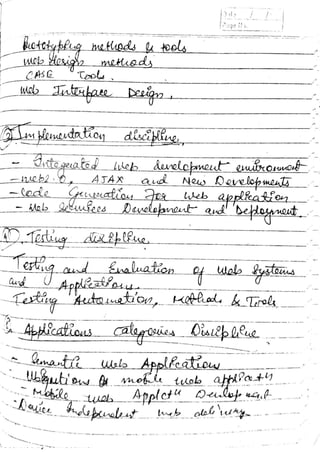 Date / /
Page No.
Prototyping methods & tools
web design methods
CASE Tools.
web Interface Design.
Implementation discipline.
- Integrated web development environment
- web 2.0, AJAX and New Developments
- Code Generation For web application
- Web Services Development and Deployment.
Testing discipline.
Testing and Evaluation of web systems
and Applications.
Testing Automation, methods & Tools
& Applications categories Discipline
- Semantic web Application
of mobile web
- Mobile web
- Device Independent web delivery.